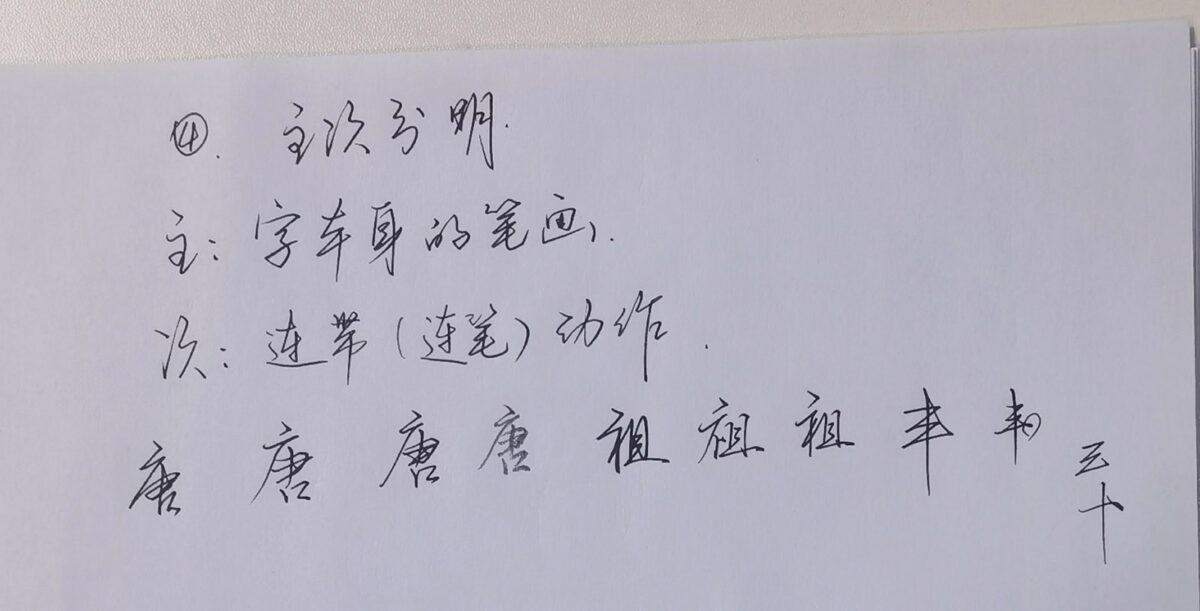 ④. 主次分明.
主: 字本身的笔画.
次: 连带(连笔)动作.
唐 唐 唐 唐 祖 祖 祖 丰